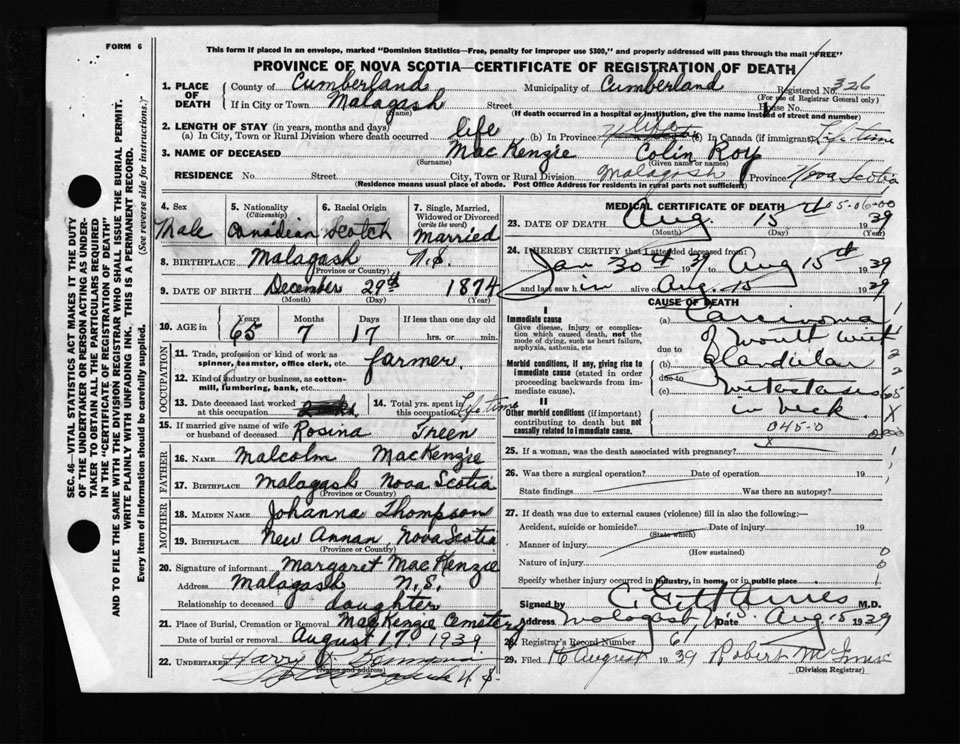 FORM 6
This form if placed in an envelope, marked "Dominion Statistics—Free, penalty for improper use $300," and properly addressed will pass through the mail "FREE"
PROVINCE OF NOVA SCOTIA—CERTIFICATE OF REGISTRATION OF DEATH
Registered No. 326
(For use of Registrar General only)
1. PLACE OF DEATH
County of Cumberland Municipality of Cumberland
If in City or Town Malagash Street House No.
(Name)
(If death occurred in a hospital or institution, give the name instead of street and number)
2. LENGTH OF STAY (in years, months and days)
(a) In City, Town or Rural Division where death occurred life (b) In Province life (c) In Canada (if immigrant) Life time
3. NAME OF DECEASED Mac Kenzie Colin Roy
(Surname) (Given name or names)
RESIDENCE No. Street City, Town or Rural Division Malagash Province Nova Scotia
(Residence means usual place of abode. Post Office Address for residents in rural parts not sufficient)
SEC. 46—VITAL STATISTICS ACT MAKES IT THE DUTY
OF THE UNDERTAKER OR PERSON ACTING AS UNDER-
TAKER TO OBTAIN ALL THE PARTICULARS REQUIRED
IN THE "CERTIFICATE OF REGISTRATION OF DEATH"
AND TO FILE THE SAME WITH THE DIVISION REGISTRAR WHO SHALL ISSUE THE BURIAL PERMIT.
WRITE PLAINLY WITH UNFADING INK. THIS IS A PERMANENT RECORD.
Every item of information should be carefully supplied. (See reverse side for instructions.)
4. Sex 5. Nationality (Citizenship) 6. Racial Origin 7. Single, Married, Widowed or Divorced (write the word)
Male Canadian Scotch Married
8. BIRTHPLACE Malagash N.S.
(Province or Country)
9. DATE OF BIRTH December 29th 1874
(Month) (Day) (Year)
10. AGE in Years Months Days If less than one day old
65 7 17 hrs. or min.
OCCUPATION
11. Trade, profession or kind of work as spinner, teamster, office clerk, etc. farmer.
12. Kind of industry or business, as cotton-mill, lumbering, bank, etc.
13. Date deceased last worked at this occupation
14. Total yrs. spent in this occupation Life time
15. If married give name of wife or husband of deceased Rosina Treen
FATHER
16. NAME Malcolm MacKenzie
17. BIRTHPLACE Malagash Nova Scotia
(Province or Country)
MOTHER
18. MAIDEN NAME Johanna Thompson
19. BIRTHPLACE New Annan, Nova Scotia
(Province or Country)
20. Signature of informant Margaret MacKenzie
Address Malagash N.S.
Relationship to deceased daughter
21. Place of Burial, Cremation or Removal MacKenzie Cemetery
Date of burial or removal August 17 1939
22. UNDERTAKER Harry
(Name and address)
N.S.
MEDICAL CERTIFICATE OF DEATH
05-06-00
23. DATE OF DEATH Aug. 15th 1939
(Month) (Day) (Year)
24. I HEREBY CERTIFY that I attended deceased from:
Jan 30th 1939 to Aug 15th 1939
and last saw h im alive on Aug. 15 1939
CAUSE OF DEATH
I
Immediate cause
Give disease, injury or complication which caused death, not the mode of dying, such as heart failure, asphyxia, asthenia, etc
(a) Carcinoma
due to of mouth with
Morbid conditions, if any, giving rise to immediate cause (stated in order proceeding backwards from immediate cause).
(b) glandular
due to
(c) metastases
II
Other morbid conditions (if important) contributing to death but not causally related to immediate cause.
in neck.
045-0
25. If a woman, was the death associated with pregnancy? x
26. Was there a surgical operation? Date of operation 19
State findings Was there an autopsy?
27. If death was due to external causes (violence) fill in also the following:—
Accident, suicide or homicide? Date of injury 19
(State which)
Manner of injury
(How sustained)
Nature of injury
Specify whether injury occurred in industry, in home, or in public place
Signed by M.D.
Address Malagash N.S. Date Aug 15 1939
28. Registrar's Record Number 67
29. Filed 16 August 1939 Robert
(Division Registrar)